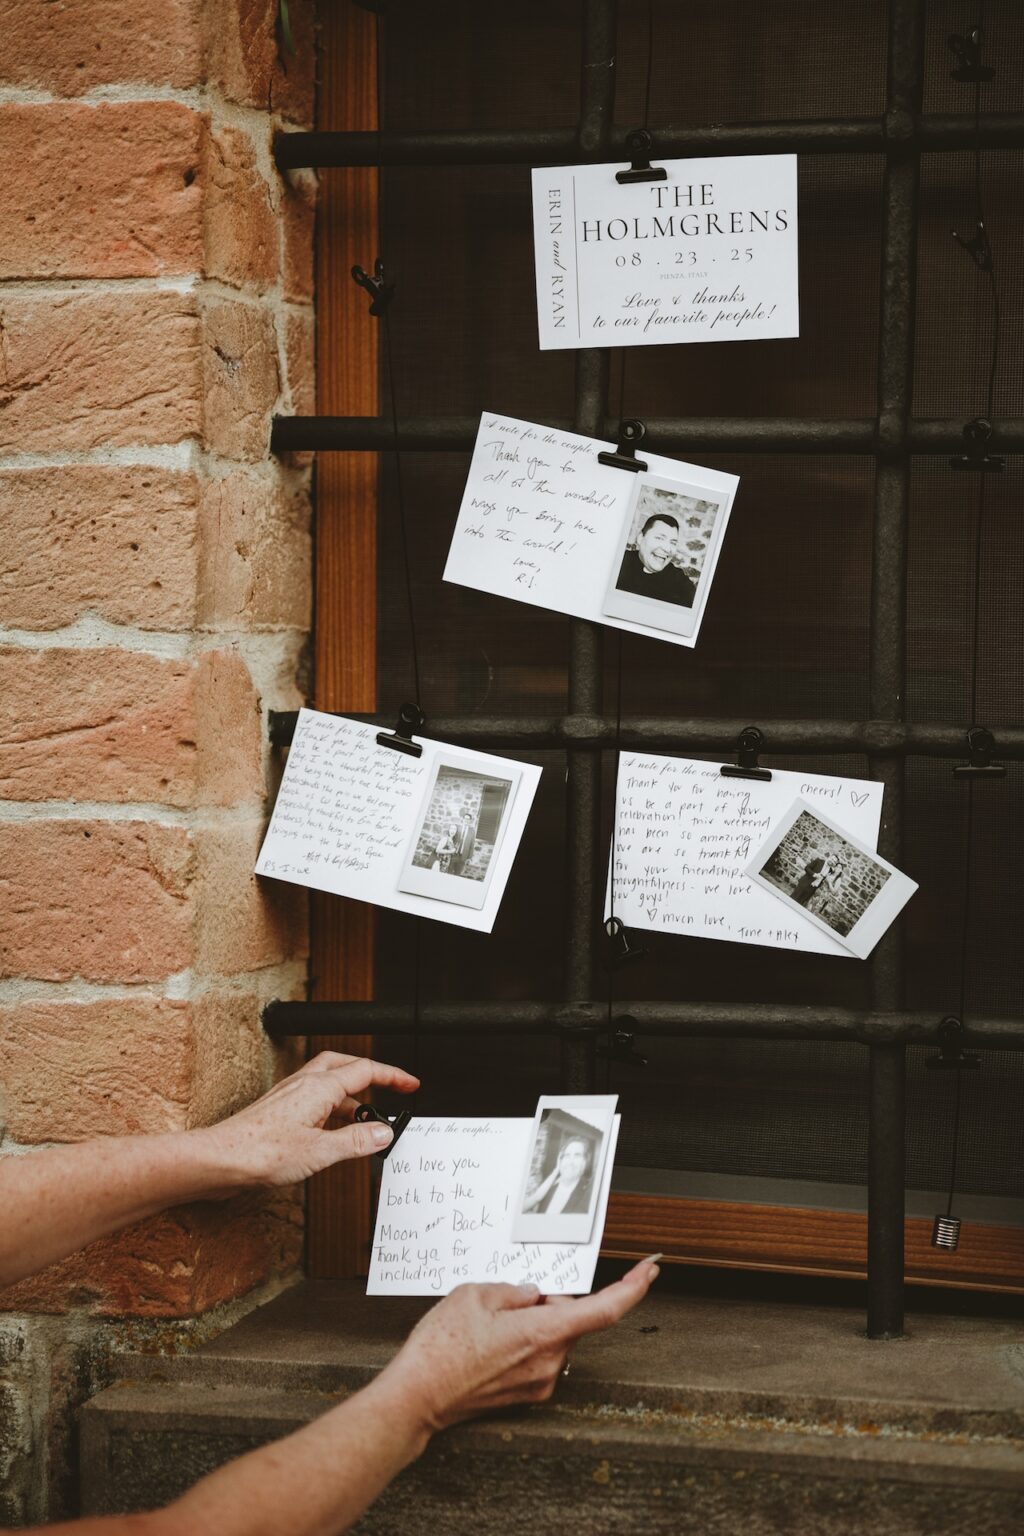 ERIN and RYAN
THE
HOLMGRENS
08 . 23 . 25
PIENZA, ITALY
Love & thanks
to our favorite people!
A note for the couple...
Thank you for
all of the wonderful
ways you bring love
into the world!
Love,
R.J.
A note for the
Thank you for letting
us be a part of your special
day. I am thankful to Ryan
for being the only one here who
understands the pain we feel every
as fans and I am
especially thankful to Erin for her
kindness, being a and
bringing out the best in Ryan
P.S.
A note for the coup
Cheers! ♡
Thank you for having
us be a part of your
celebration! this weekend
has been so amazing!
we are so thankful
for your friendship +
thoughtfulness. we love
you guys!
♡ much love,
+ Alex
note for the couple...
We love you
both to the
Moon and Back!
Thank ya for
including us.
Aunt Jill
and the other
guy